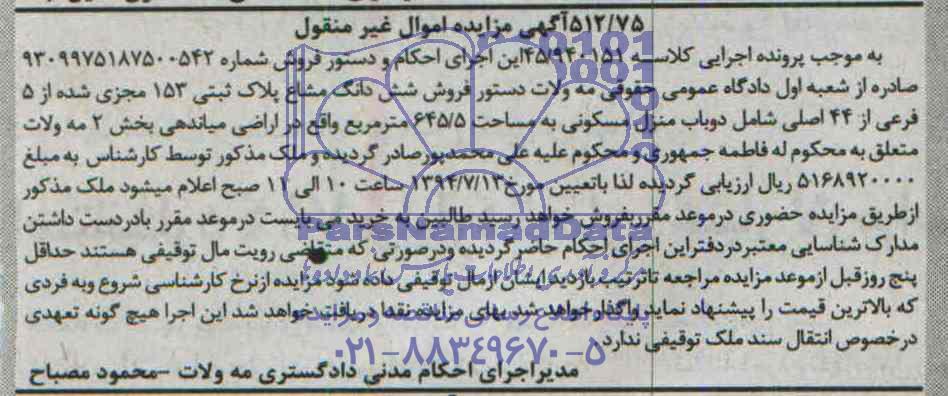 ۵۱۲/۷۵آگهی مزایده اموال غیر منقول
به موجب پرونده اجرایی کلاسه ۴۵/۹۴۰۱۵۹این اجرای احکام و دستور فروش شماره ۹۳۰۹۹۷۵۱۸۷۵۰۰۵۴۲
صادره از شعبه اول دادگاه عمومی حقوقی مه ولات دستور فروش شش دانگ مشاع پلاک ثبتی ۱۵۳ مجزی شده از ۵
فرعی از ۴۴ اصلی شامل دوباب منزل مسکونی به مساحت ۶۴۵/۵ مترمربع واقع در اراضی میاندهی بخش ۲ مه ولات
متعلق به محکوم له فاطمه جمهوری و محکوم علیه علی محمدپورصادر گردیده و ملک مذکور توسط کارشناس به مبلغ
۵۱۶۸۹۲۰۰۰۰ ریال ارزیابی گردیده لذا باتعیین مورخ۱۳۹۴/۷/۱۳ ساعت ۱۰ الی ۱۱ صبح اعلام میشود ملک مذکور
ازطریق مزایده حضوری درموعد مقرربفروش خواهد رسید طالبین به خرید می بایست درموعد مقرر بادردست داشتن
مدارک شناسایی معتبردردفتراین اجرای احکام حاضرگردیده ودرصورتی که متقاضی رویت مال توقیفی هستند حداقل
پنج روزقبل ازموعد مزایده مراجعه تاترتیب بازدیدایشان ازمال توقیفی داده شود مزایده ازنرخ کارشناسی شروع وبه فردی
که بالاترین قیمت را پیشنهاد نماید واگذارخواهد شد بهای مزایده نقدا دریافت خواهد شد این اجرا هیچ گونه تعهدی
درخصوص انتقال سند ملک توقیفی ندارد.
مدیراجرای احکام مدنی دادگستری مه ولات -محمود مصباح
ParsNamadData
۰۲۱-۸۸۳۴۹۶۷۰-۵